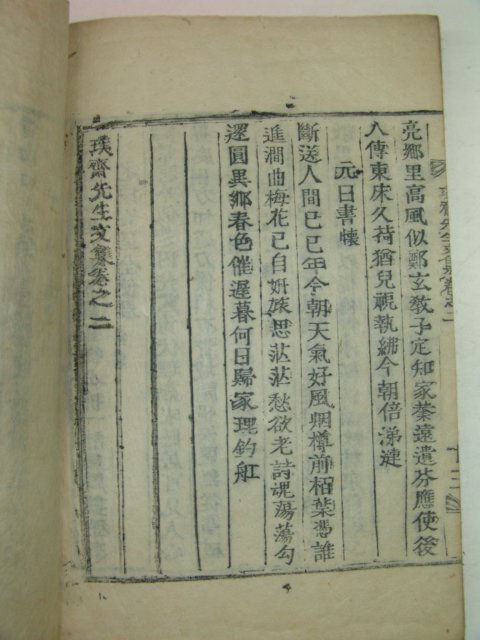 亮鄉里高風似鄭玄敎子定知家業遠遺芬應使後
人傳東床久荷猶兒視執紼今朝倍涕漣
元日書懷
斷送人間已巳年今朝天氣好風烟樽前栢葉憑誰
進澗曲梅花已自姸旅思茫茫愁欲老詩魂蕩蕩勾
還圓異鄉春色催遲暮何日歸家理釣舡
璞齋先生文集卷之二